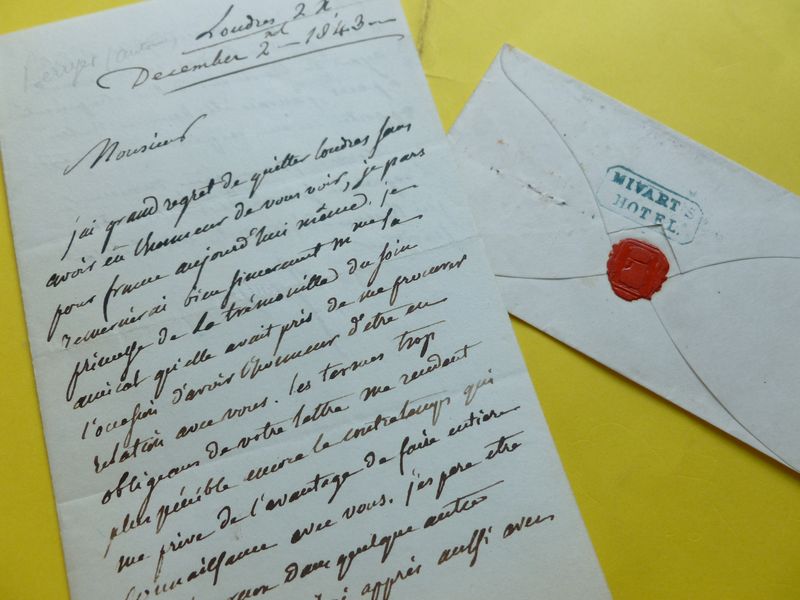 Londres 2 X.
December 2nd 1843
Monsieur
j'ai grand regret de quitter londres sans
avoir eu l'honneur de vous voir, je pars
pour france aujourd'hui même. je
remercierai bien sincerement Mme la
princesse de la trémouille du soin
amical qu'elle avait pris de me procurer
l'occasion d'avoir l'honneur d'etre en
relation avec vous. les termes trop
obligeans de votre lettre me rendent
plus pénible encore le contretemps qui
me prive de l'avantage de faire entiere
connaissance avec vous. j'espere etre
dans quelque autre
appris aussi avec
MIVART'S
HOTEL